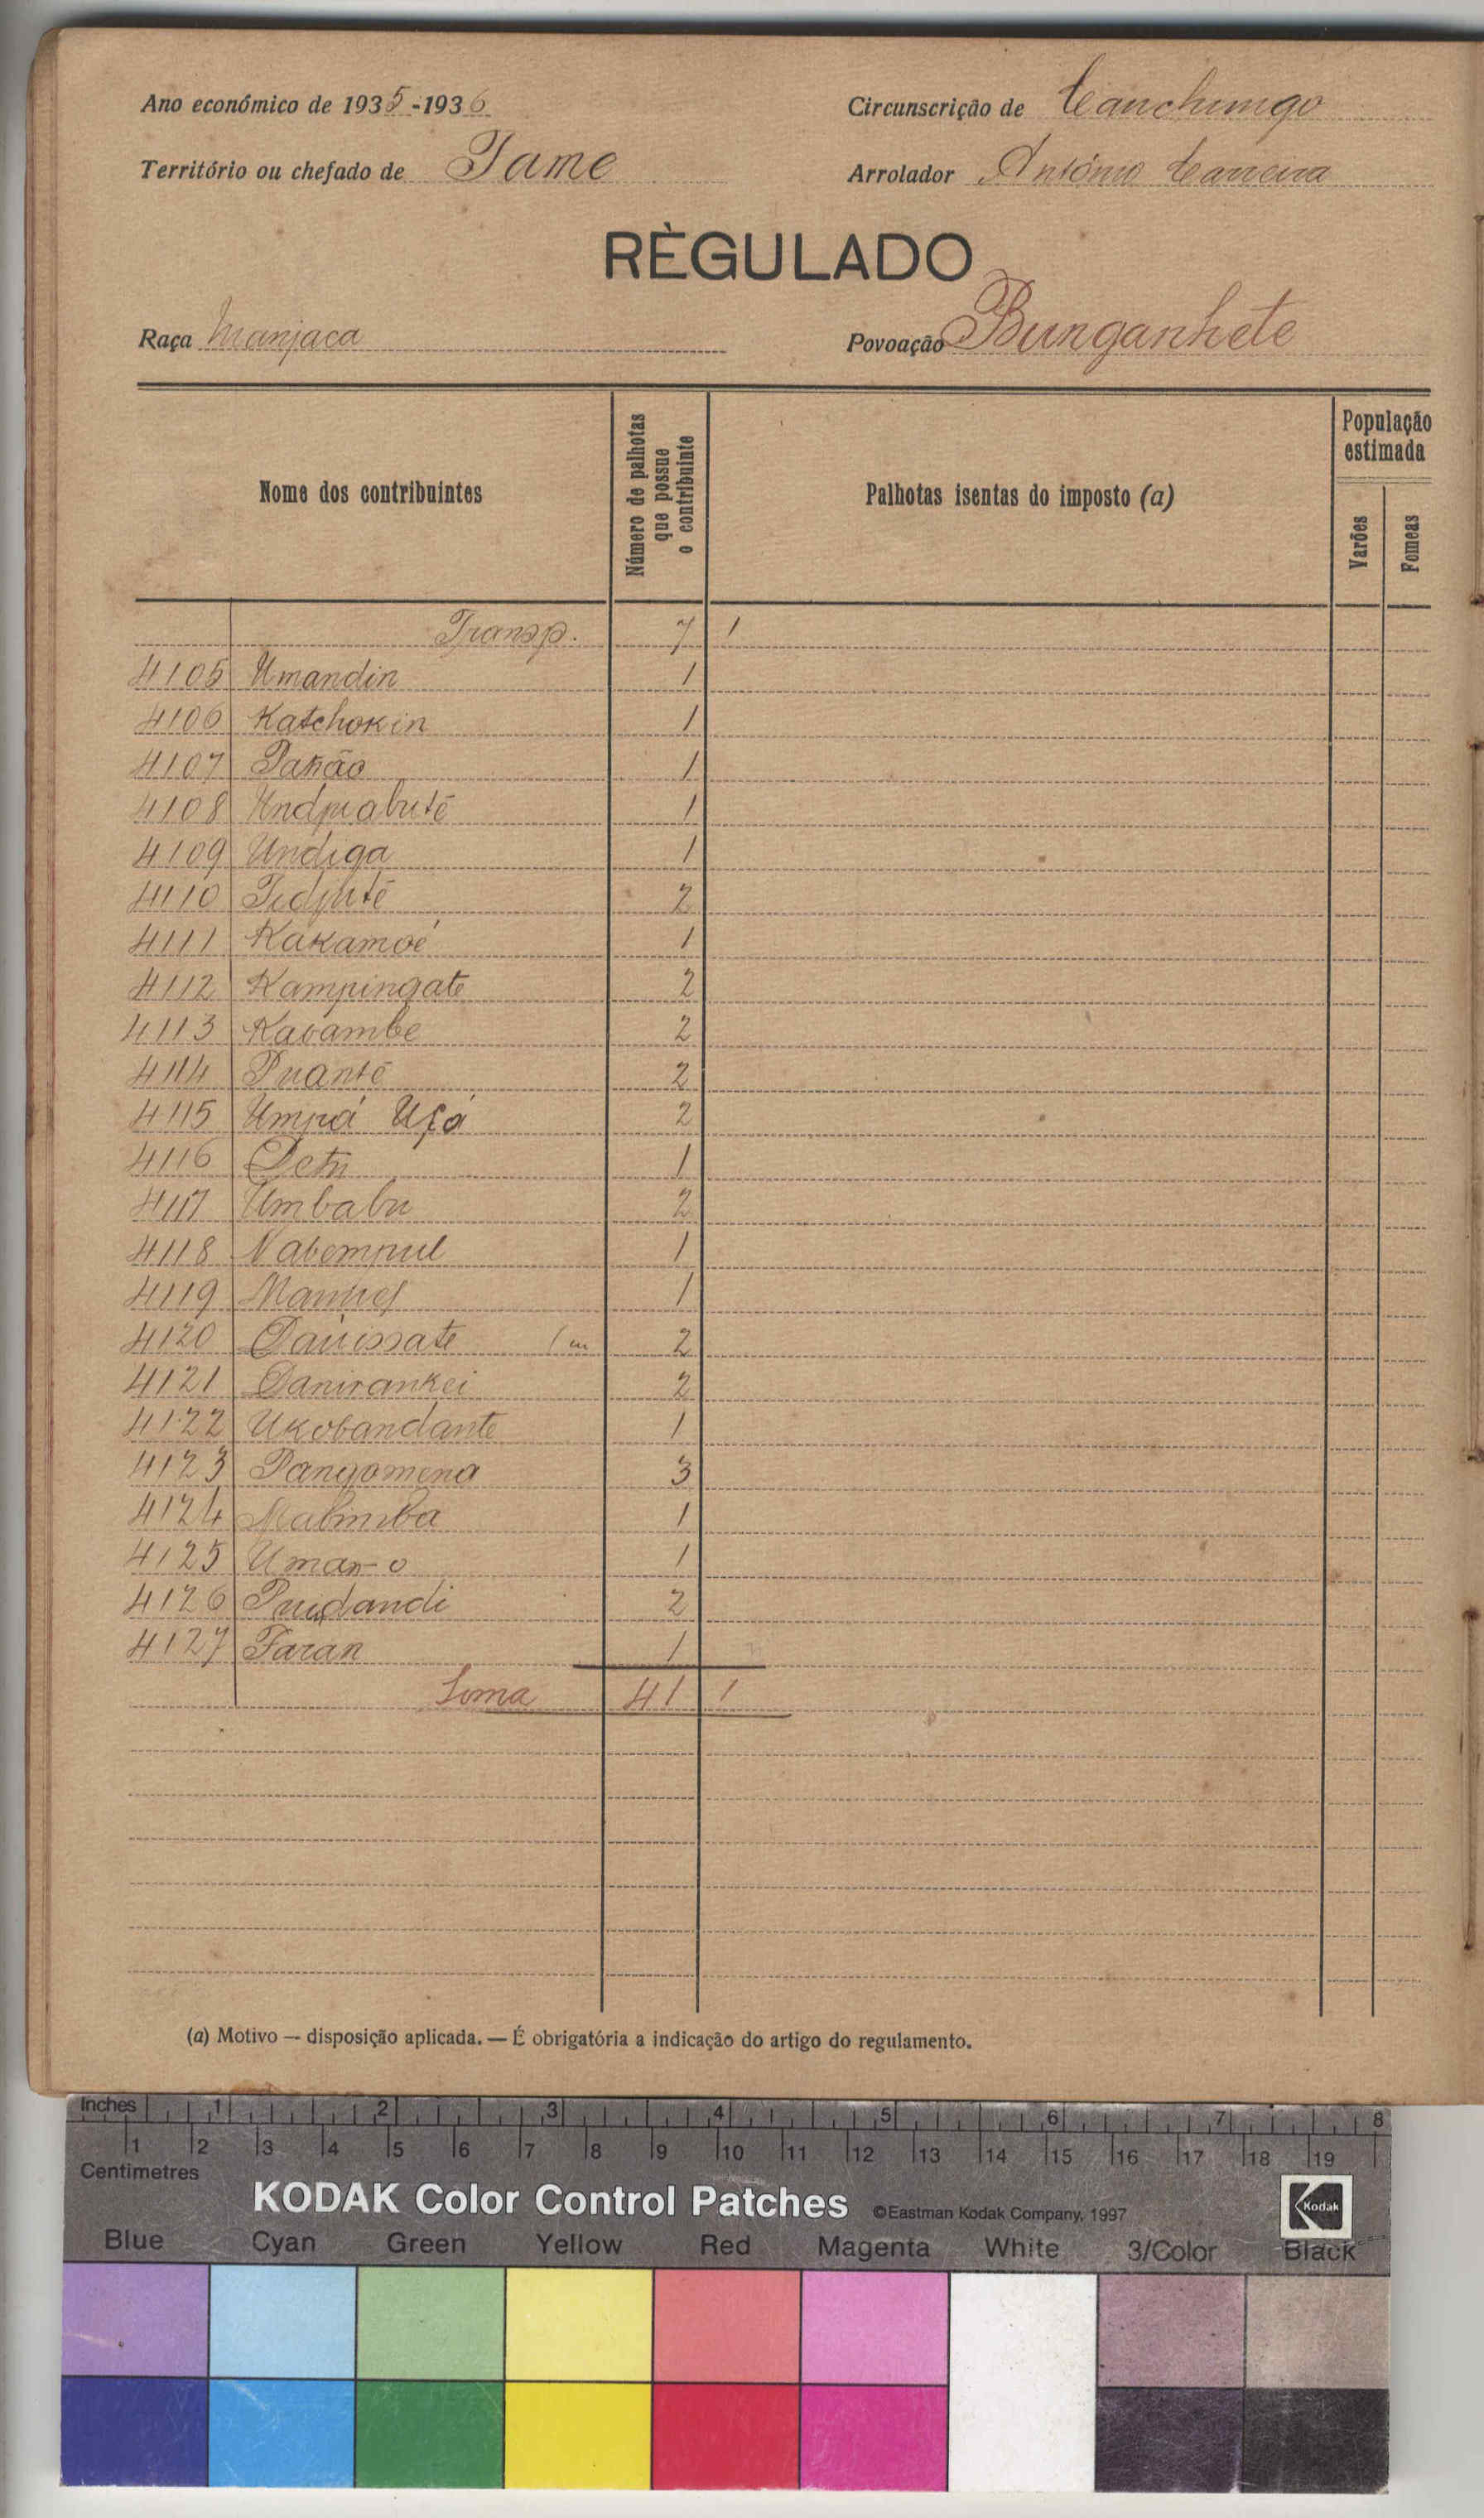 Ano económico de 1935-1936
Circunscrição de Canchungo
Território ou chefado de Tame
Arrolador António Carreira
RÈGULADO
Raça Manjaca
Povoação Bunganhete
Nome dos contribuintes
Número de palhotas que possue o contribuinte
Palhotas isentas do imposto (a)
População estimada
Varões
Fomeas
Transp. 7 1
4105 Umandin 1
4106 Katchokin 1
4107 Pakão 1
4108 Undpiabuté 1
4109 Undiga 1
4110 2
4111 Kakamoé 1
4112 Kampingate 2
4113 Kavambe 2
4114 Puanté 2
4115 Umpá Uçá 2
4116 1
4117 Umbabu 2
4118 Nabempul 1
4119 Manuel 1
4120 Dauissate 2
4121 Danirankei 2
4122 Ukobandante 1
4123 Pangomena 3
4124 Malimba 1
4125 1
4126 2
4127 Faran 1
Soma 41 1
(a) Motivo — disposição aplicada. — É obrigatória a indicação do artigo do regulamento.
Inches 1 2 3 4 5 6 7 8
1 2 3 4 5 6 7 8 9 10 11 12 13 14 15 16 17 18 19
Centimetres
KODAK Color Control Patches ©Eastman Kodak Company, 1997 Kodak
Blue Cyan Green Yellow Red Magenta White 3/Color Black